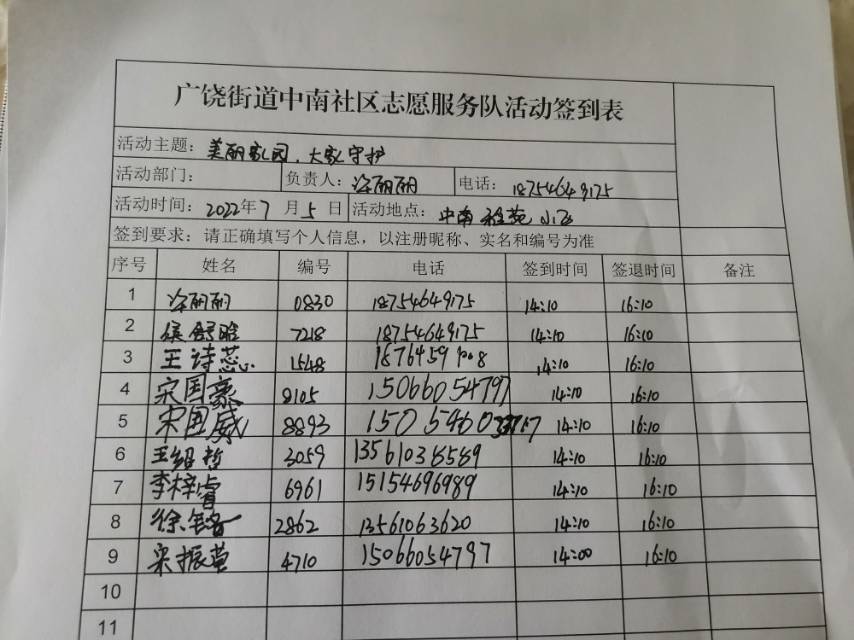 广饶街道中南社区志愿服务队活动签到表
活动主题: 美丽家园.大家守护
活动部门: 负责人: 涂丽丽 电话: 18754649175
活动时间: 2022年7月5日 活动地点: 中南 小区
签到要求: 请正确填写个人信息，以注册昵称、实名和编号为准
序号 姓名 编号 电话 签到时间 签退时间 备注
1 涂丽丽 0830 18754649175 14:10 16:10
2 7218 18754649175 14:10 16:10
3 王诗蕊 1548 14:10 16:10
4 宋国豪 8105 15066054797 14:10 16:10
5 宋国威 8893 14:10 16:10
6 王绍哲 3059 13561038589 14:10 16:10
7 李梓睿 6961 15154696989 14:10 16:10
8 2862 13561063620 14:10 16:10
9 4710 15066054797 14:00 16:10
10
11